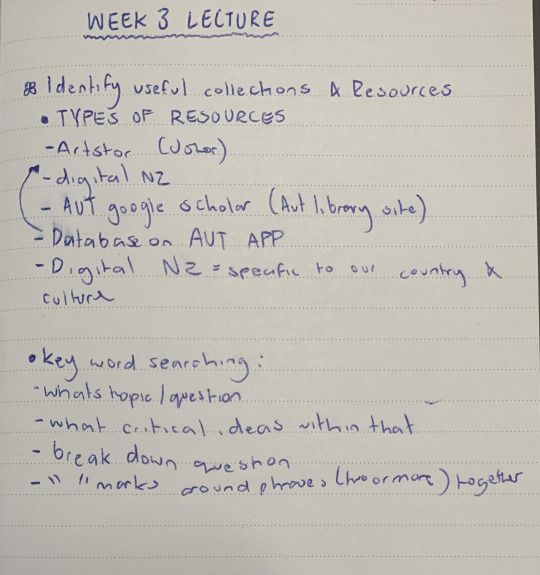 WEEK 3 LECTURE
Identify useful collections & Resources
• TYPES OF RESOURCES
- Artstor (Jstor)
- digital NZ
- AUT google scholar (Aut library site)
- Database on AUT APP
- Digital NZ = specific to our country &
culture
• Key word searching:
- whats topic/question
- what critical ideas within that
- break down question
- " " marks around phrases (two or more) together